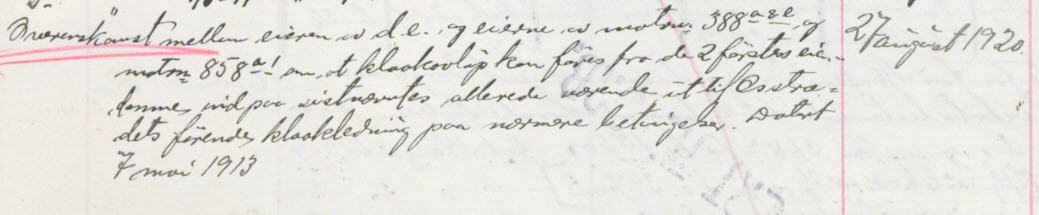 Overenskomst mellem eieren av d.e. og eierne av matrn. 388 a & e og 27 august 1920.
matrn 858 a 1 om at kloakavløp kan føres fra de 2 førstes eien-
domme ind paa sistnævntes allerede værende ut til Øststræ=
dets førende kloakledning paa nærmere betingelser. Datert
7 mai 1913